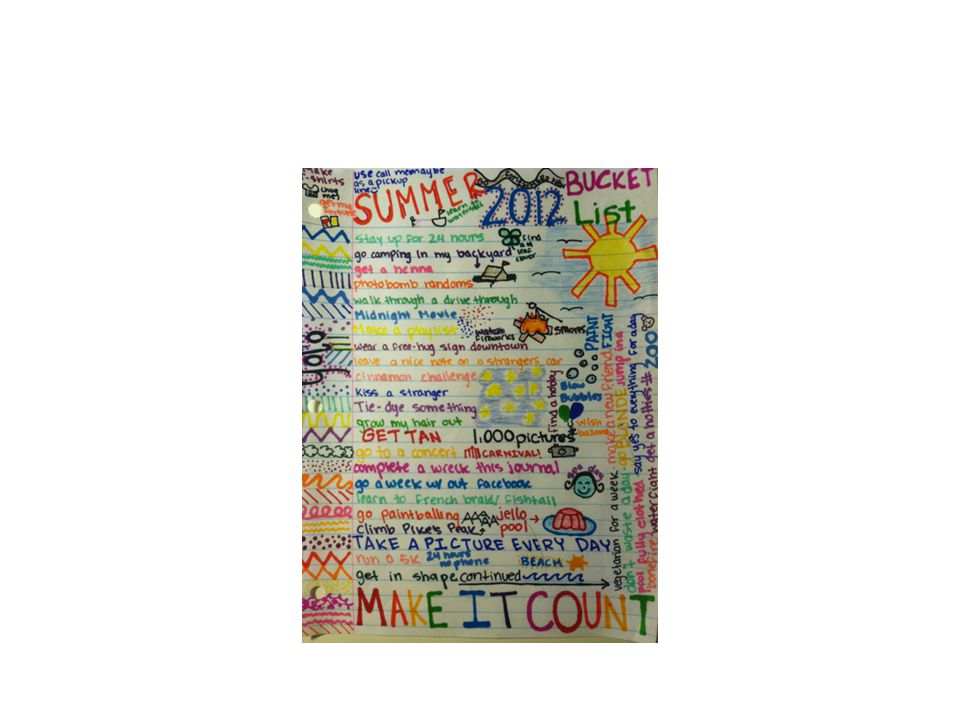 make
t-shirts
use call me maybe
as a pickup
line
SUMMER
2012
BUCKET
List
learn to
stay up for 24 hours
find
a 4
leaf
clover
go camping in my backyard
get a henna
photobomb randoms
walk through a drive through
Midnight Movie
Make a playlist
watch
fireworks
smores
wear a free-hug sign downtown
leave a nice note on a strangers car
cinnamon challenge
kiss a stranger
Tie-dye something
grow my hair out
find a hobby
Blow
Bubbles
wish
GET TAN
1,000 pictures
go to a concert
CARNIVAL!
complete a wreck this journal
spa day
go a week w/out facebook
learn to french braid/fishtail
go paintballing
jello
pool
climb Pike's Peak
TAKE A PICTURE EVERY DAY
run a 5K
24 hours
no phone
BEACH
get in shape
continued
MAKE IT COUNT
yolo
PAINT
FIGHT
vegetarian for a week
make a new friend
don't waste a day
go BLONDE
jump in a
pool fully clothed
say yes to everything for a day
bonfire
waterfight
get a hotties #
ZOO